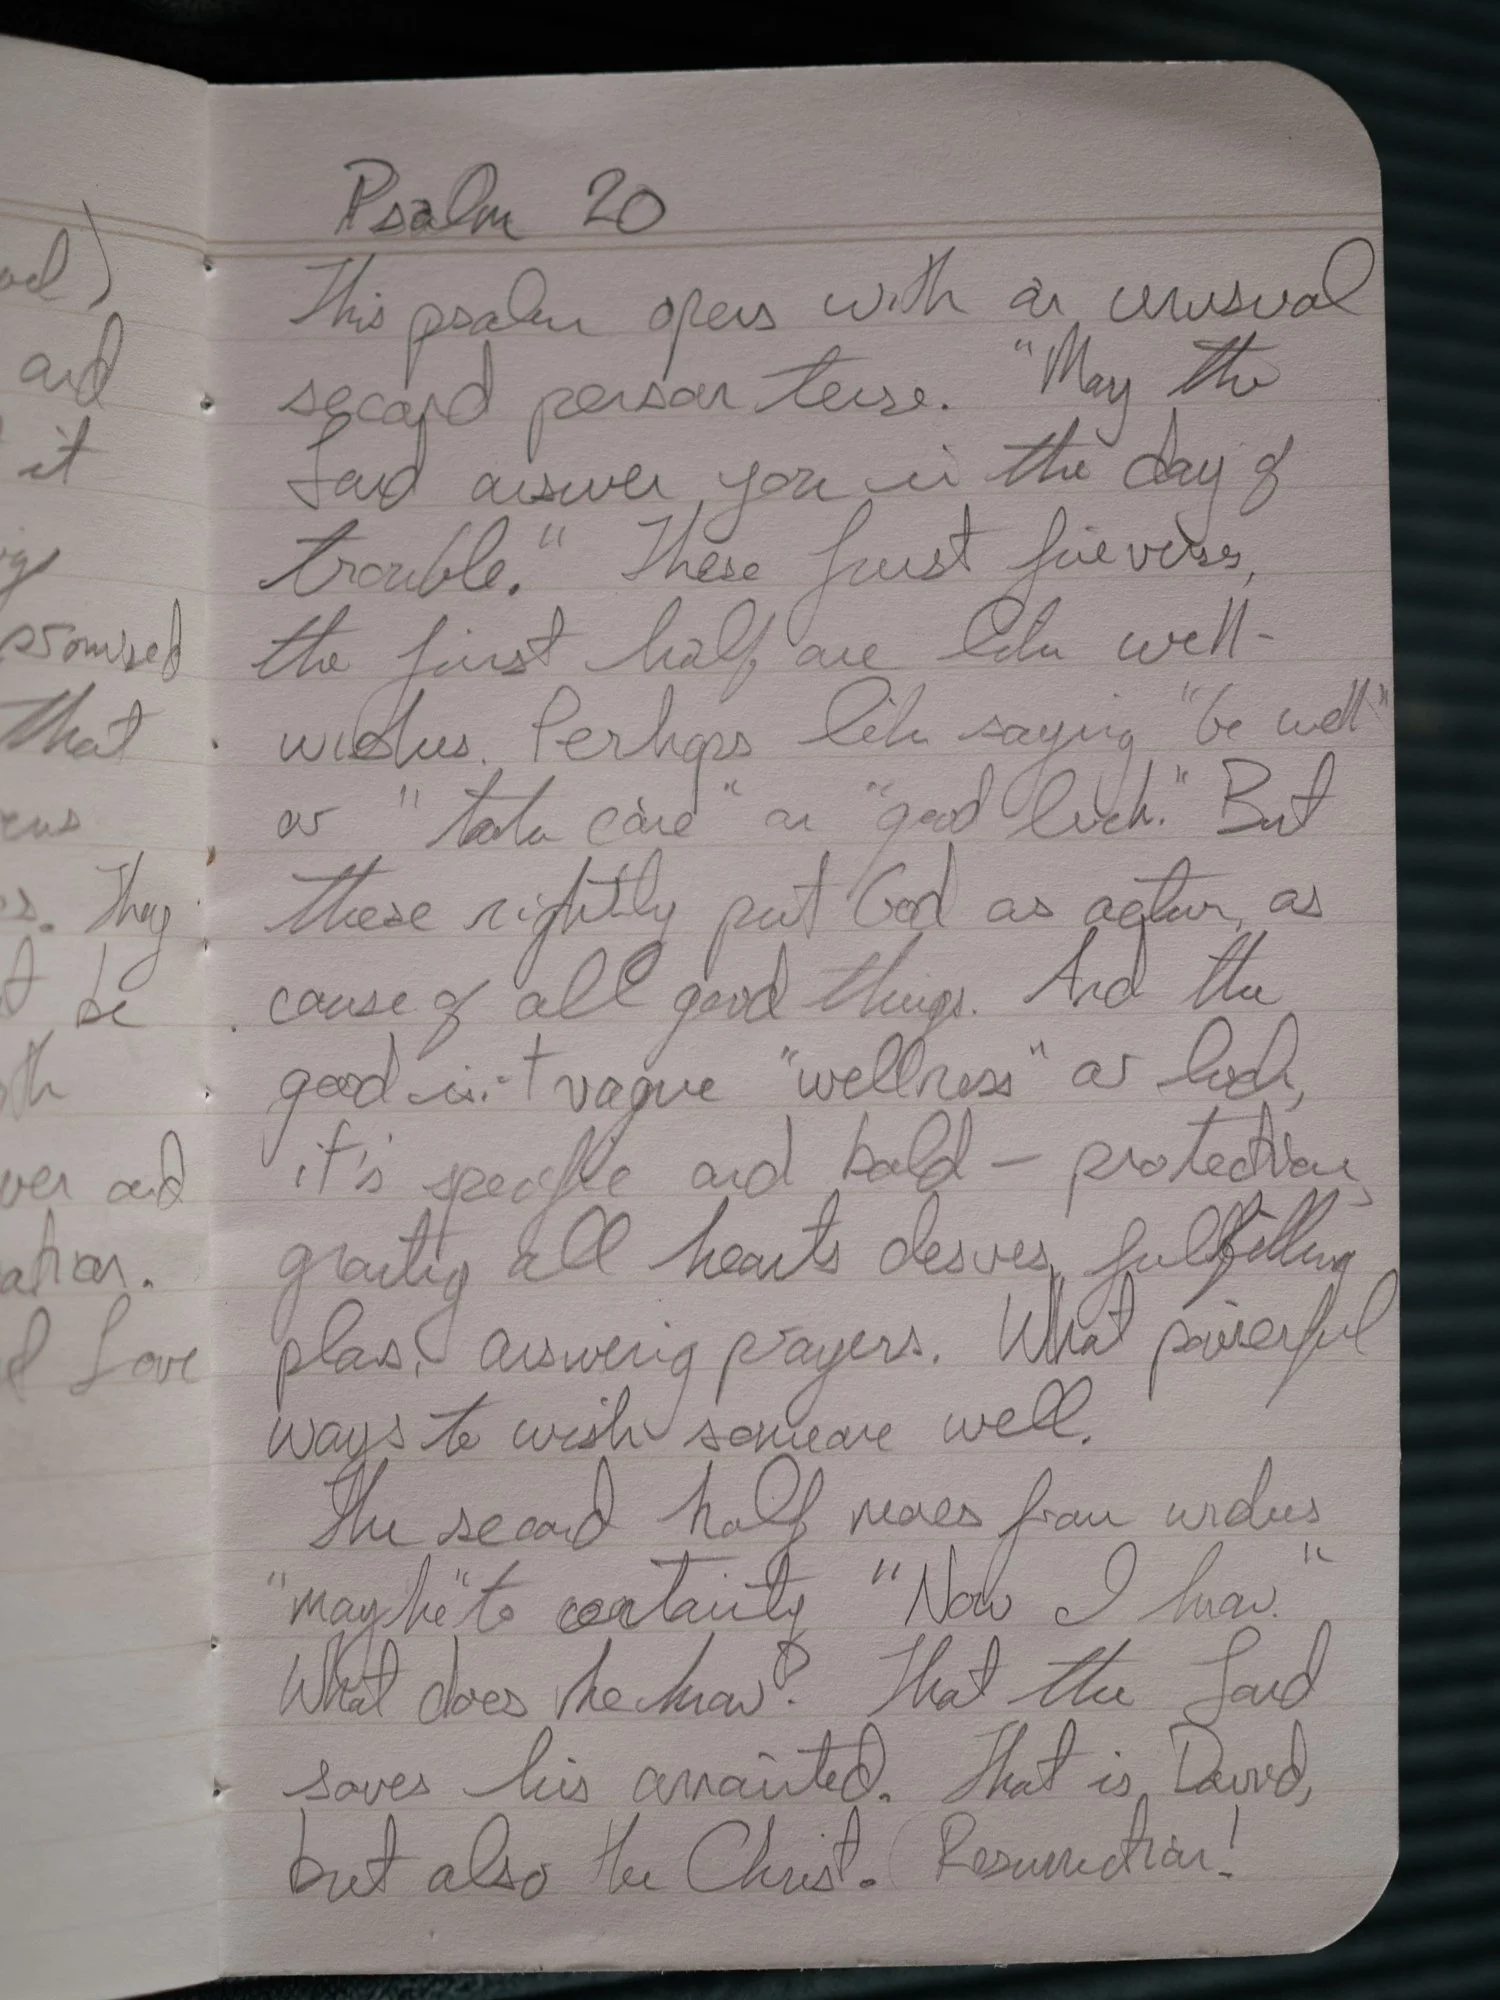 ad)
and
it
promised
that
They
be
th
ver and
ation.
Love
Psalm 20
This psalm opens with an unusual
second person tense. "May the
Lord answer you in the day of
trouble." These first five verses,
the first half, are like well-
wishes. Perhaps like saying "be well"
or "take care" or "good luck." But
these rightly put God as actor, as
cause of all good things. And the
good isn't vague "wellness" or luck,
it's specific and bold – protection,
granting all hearts desires, fulfilling
plans, answering prayers. What powerful
ways to wish someone well.
The second half moves from wishes
"may he" to certainty "Now I know."
What does he know? That the Lord
saves his annointed. That is David,
but also the Christ. (Resurrection!